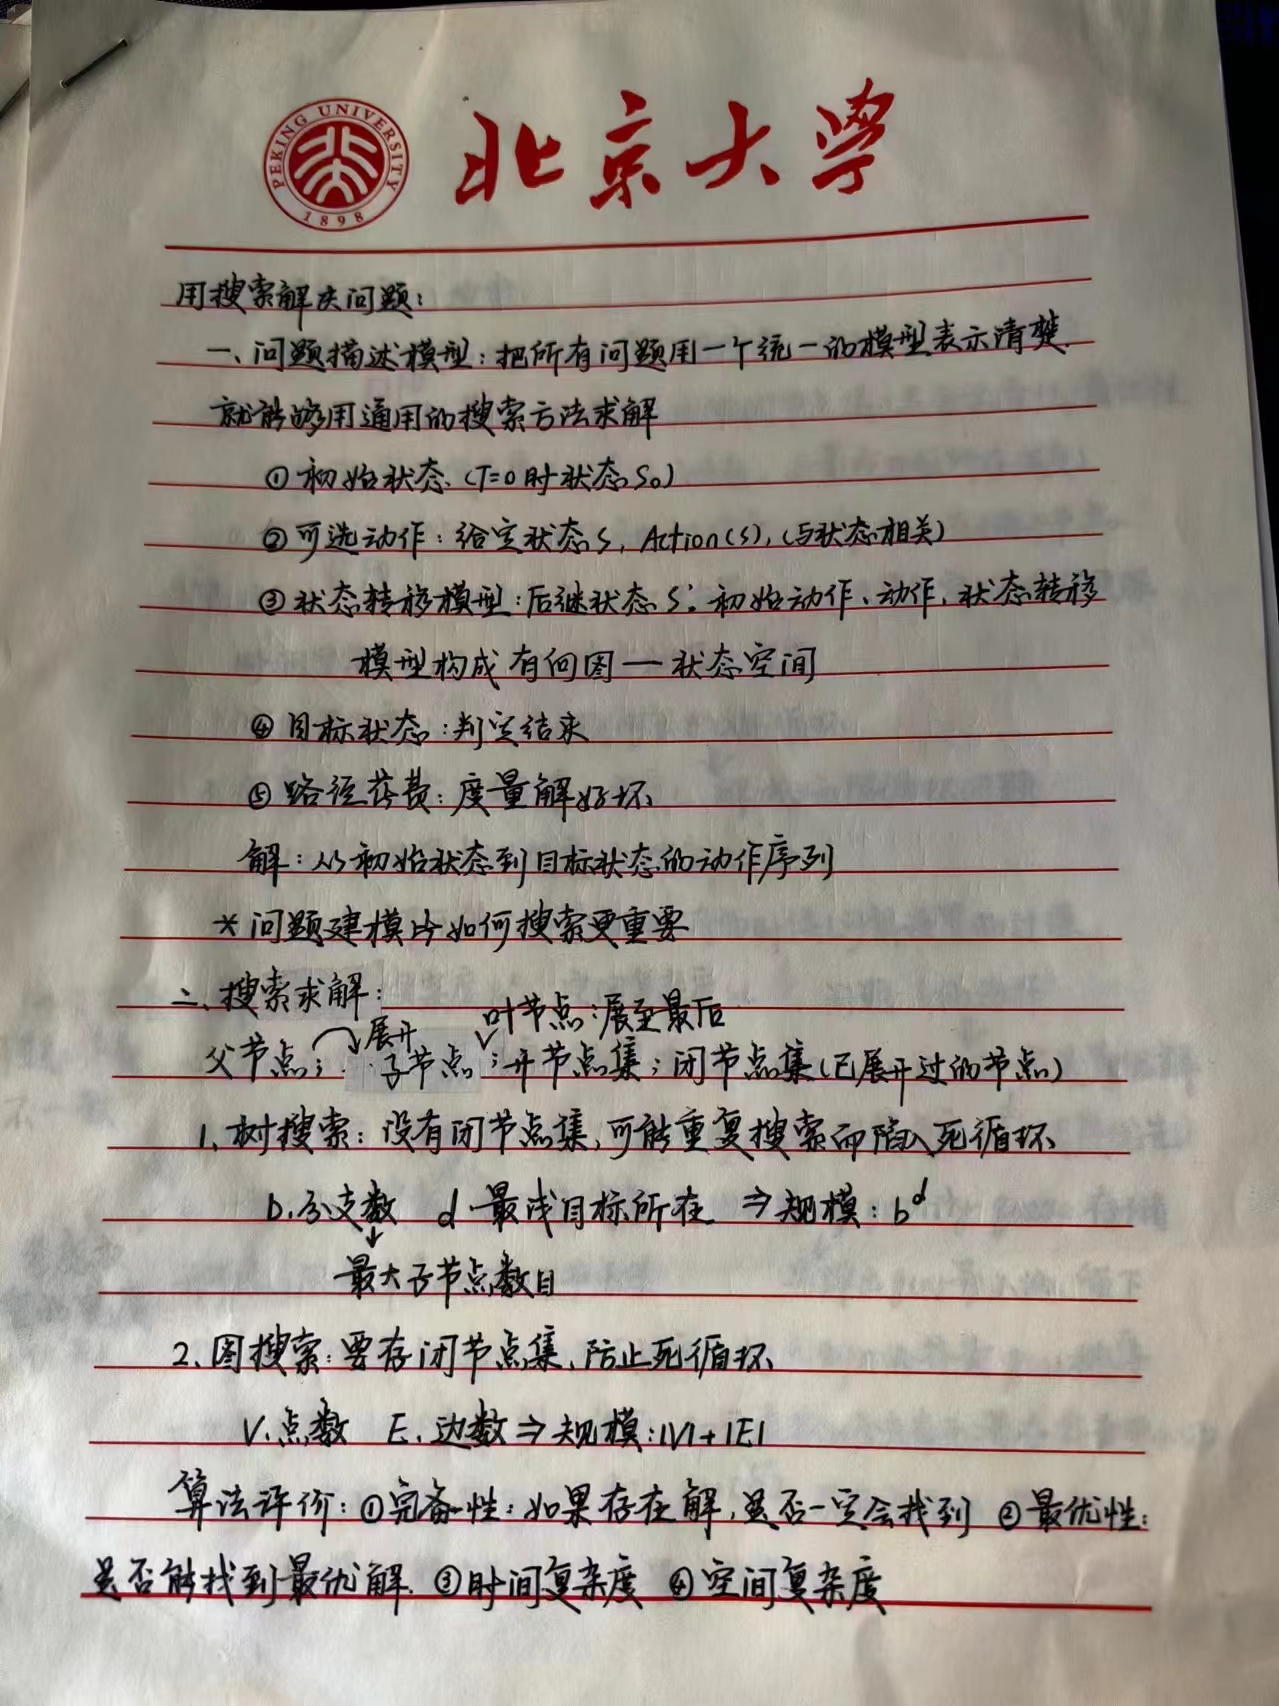 PEKING UNIVERSITY
1898
北京大学
用搜索解决问题:
一、问题描述模型:把所有问题用一个统一的模型表示清楚.
就能够用通用的搜索方法求解
① 初始状态 (T=0时状态S₀)
② 可选动作:给定状态S, Action(S), (与状态相关)
③ 状态转移模型:后继状态S'. 初始动作、动作、状态转移
模型构成有向图—状态空间
④ 目标状态:判定结束
⑤ 路径花费:度量解好坏
解:从初始状态到目标状态的动作序列
* 问题建模比如何搜索更重要
二、搜索求解:
叶节点:展至最后
展开
父节点; 子节点;开节点集;闭节点集(已展开过的节点)
1、树搜索:没有闭节点集,可能重复搜索而陷入死循环
b.分支数 d.最浅目标所在 ⇒规模:b^d
↓
最大子节点数目
2、图搜索:要存闭节点集,防止死循环
V.点数 E.边数⇒规模:|V|+|E|
算法评价:①完备性:如果存在解,是否一定会找到 ②最优性:
是否能找到最优解. ③时间复杂度 ④空间复杂度